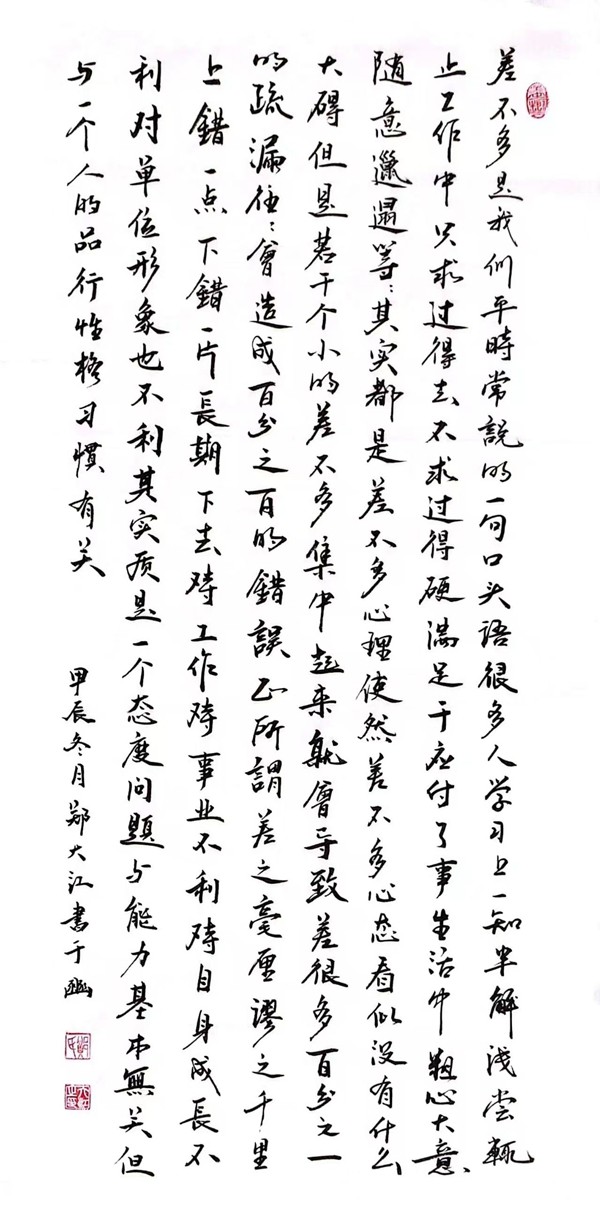 差不多是我们平時常說的一句口头语很多人学习上一知半解浅尝輒
止工作中只求过得去不求过得硬满足于应付了事生活中粗心大意
随意邋遢等：其实都是差不多心理使然差不多心态看似没有什么
大碍但是若干个小的差不多集中起来就會导致差很多百分之一
的疏漏往：會造成百分之百的錯誤正所謂差之毫厘謬之千里
上錯一点下錯一片長期下去对工作对事业不利对自身成長不
利对单位形象也不利其实质是一个态度问题与能力基本無关但
与一个人的品行性格习慣有关
甲辰冬月郑大江書于